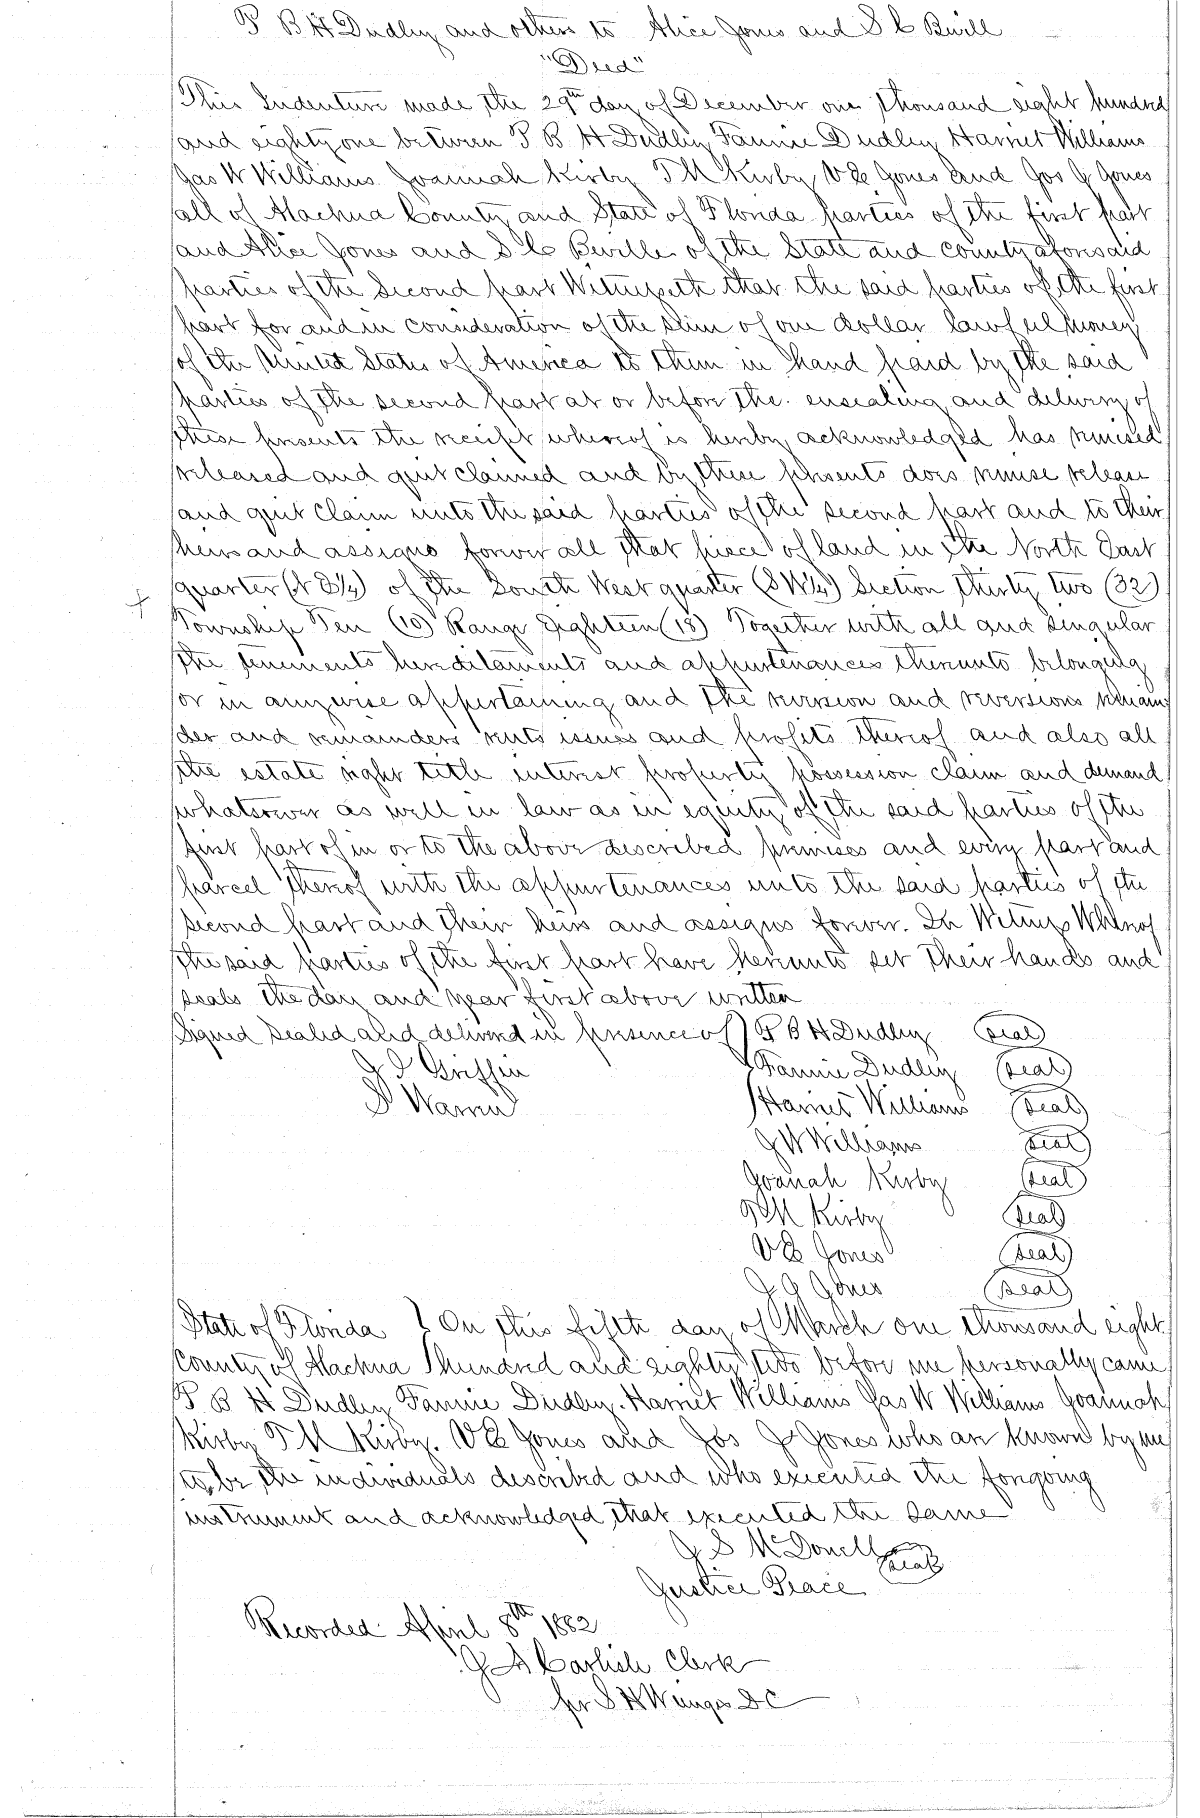 P B H Dudley and others to Alice Jones and S C Bevill
"Deed"
This Indenture made the 29th day of December one thousand eight hundred
and eighty one between P B H Dudley Fannie Dudley Harriet Williams
Jas W Williams Joannah Kirby T M Kirby V E Jones and Jos G Jones
all of Alachua County and State of Florida parties of the first part
and Alice Jones and S C Beville of the State and County aforesaid
parties of the Second part Witnesseth that the said parties of the first
part for and in consideration of the sum of one dollar lawful Money
of the United States of America to them in hand paid by the said
parties of the second part at or before the ensealing and delivery of
these presents the receipt whereof is hereby acknowledged has remised
released and quit claimed and by these presents does remise release
and quit Claim unto the said parties of the second part and to their
heirs and assigns forever all that piece of land in the North East
quarter (N E 1/4) of the South West quarter (S W 1/4) Section thirty two (32)
Township Ten (10) Range Eighteen (18) Together with all and singular
the tenements hereditaments and appurtenances thereunto belonging
or in anywise appertaining and the reversion and reversions remain
der and remainders rents issues and profits thereof and also all
the estate right title interest property possession claim and demand
whatsoever as well in law as in equity of the said parties of the
first part of in or to the above described premises and every part and
parcel thereof with the appurtenances unto the said parties of the
second part and their heirs and assigns forever. In Witness Whereof
the said parties of the first part have hereunto set their hands and
seals the day and year first above written
Signed Sealed and delivered in presence of) P B H Dudley (seal)
J I Griffin Fannie Dudley (seal)
D Warren Harriet Williams (seal)
J W Williams (seal)
Joanah Kirby (seal)
T M Kirby (seal)
V E Jones (seal)
J G Jones (seal)
State of Florida } On this fifth day of March one thousand eight
County of Alachua } hundred and eighty two before me personally came
P B H Dudley Fannie Dudley. Harriet Williams Jas W Williams Joannah
Kirby T M Kirby. V E Jones and Jos G Jones who are known by me
to be the individuals described and who executed the foregoing
instrument and acknowledged that executed the same
J S McDonell (seal)
Justice Peace
Recorded April 8th 1882
J A Carlisle Clerk
pr S H Wienges D C